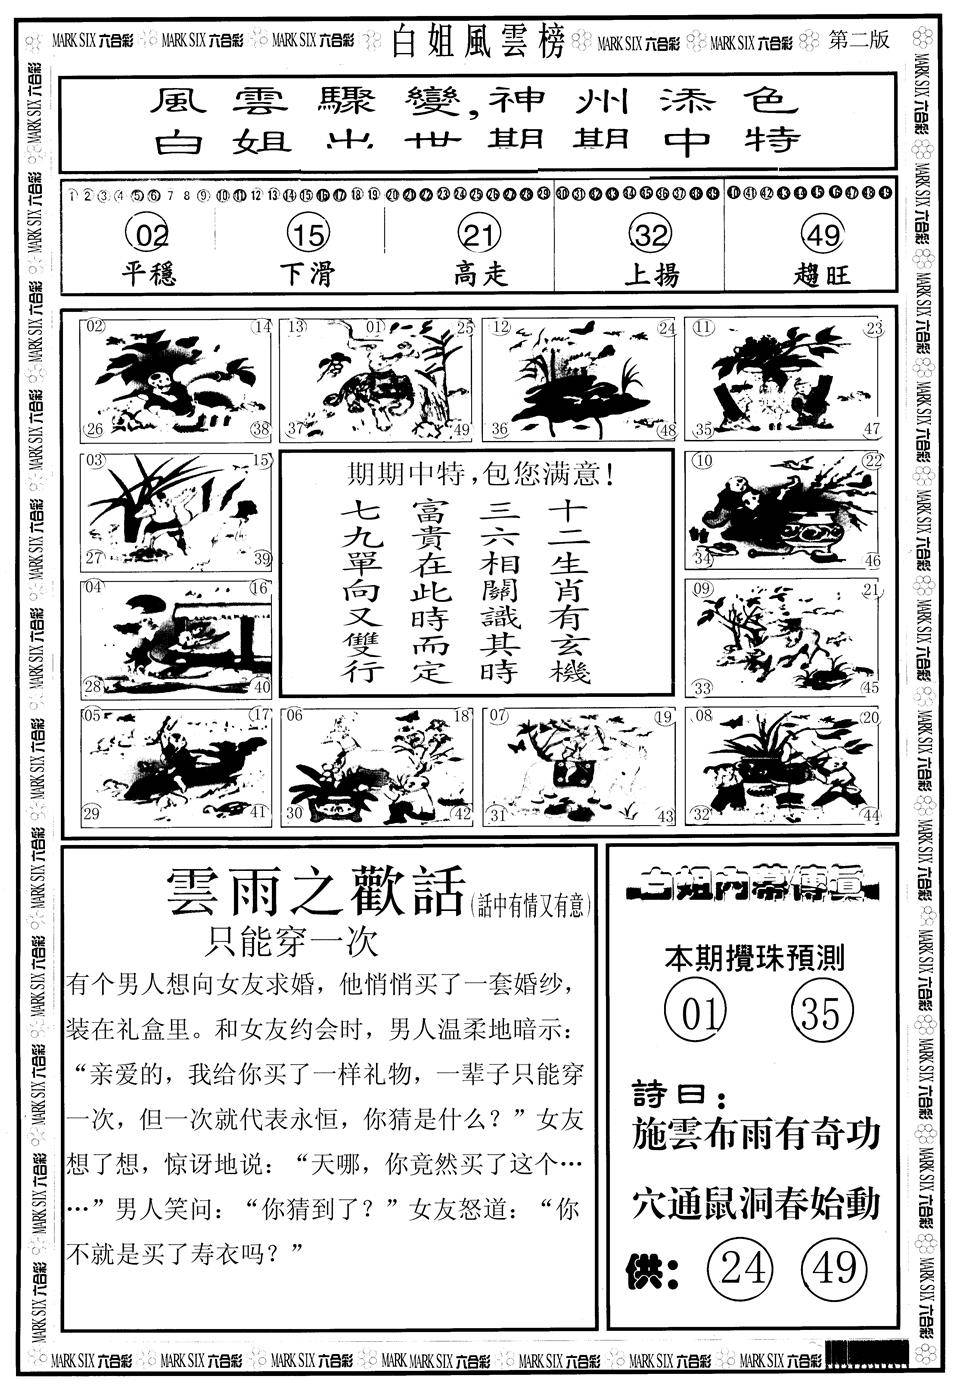 MARK SIX 六合彩 MARK SIX 六合彩 MARK SIX 六合彩 白姐風雲榜 MARK SIX 六合彩 MARK SIX 六合彩 第二版
風雲驟變,神州添色
白姐出世期期中特
1 2 3 4 5 6 7 8 9 10 11 12 13 14 15 16 17 18 19 20 21 22 23 24 25 26 27 28 29 30 31 32 33 34 35 36 37 38 39 40 41 42 43 44 45 46 47 48 49
02 15 21 32 49
平穩 下滑 高走 上揚 趨旺
02 14 13 01 25 12 24 11 23
26 38 37 49 36 48 35 47
03 15
27 39
04 16
28 40
期期中特,包您满意!
十二生肖有玄機
三六相關識其時
富貴在此時而定
七九單向又雙行
10 22
34 46
09 21
33 45
05 17 06 18 07 19 08 20
29 41 30 42 31 43 32 44
雲雨之歡話(話中有情又有意)
只能穿一次
有个男人想向女友求婚，他悄悄买了一套婚纱，
装在礼盒里。和女友约会时，男人温柔地暗示：
“亲爱的，我给你买了一样礼物，一辈子只能穿
一次，但一次就代表永恒，你猜是什么？”女友
想了想，惊讶地说：“天哪，你竟然买了这个…
…”男人笑问：“你猜到了？”女友怒道：“你
不就是买了寿衣吗？”
白姐内幕傳真
本期攪珠預測
01 35
詩曰：
施雲布雨有奇功
穴通鼠洞春始動
供： 24 49
MARK SIX 六合彩 MARK SIX 六合彩 MARK SIX 六合彩 MARK MARK SIX 六合彩 MARK SIX 六合彩 MARK SIX 六合彩 MARK SIX 六合彩